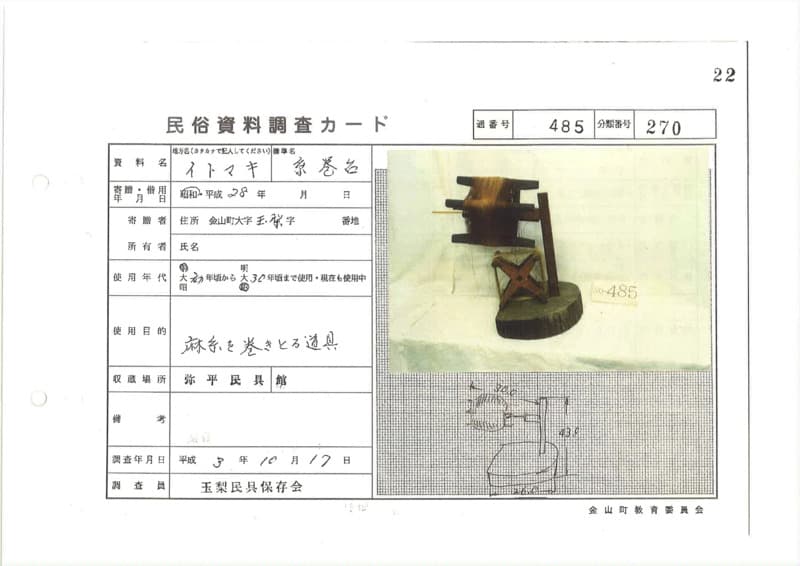 22
民俗資料調査カード
通番号 485 分類番号 270
資料名 地方名(カタカナで記入してください) イトマキ 標準名 糸巻台
寄贈・借用年月日 昭和・平成 28年 月 日
寄贈者 住所 金山町大字玉梨字 番地
所有者 氏名
使用年代 明大昭 初年頃から 明大昭 30年頃まで使用・現在も使用中
使用目的 麻糸を巻きとる道具
収蔵場所 弥平民具館
備考
調査年月日 平成 3年 10月 17日
調査員 玉梨民具保存会
485
30.0
43.0
26.0
金山町教育委員会